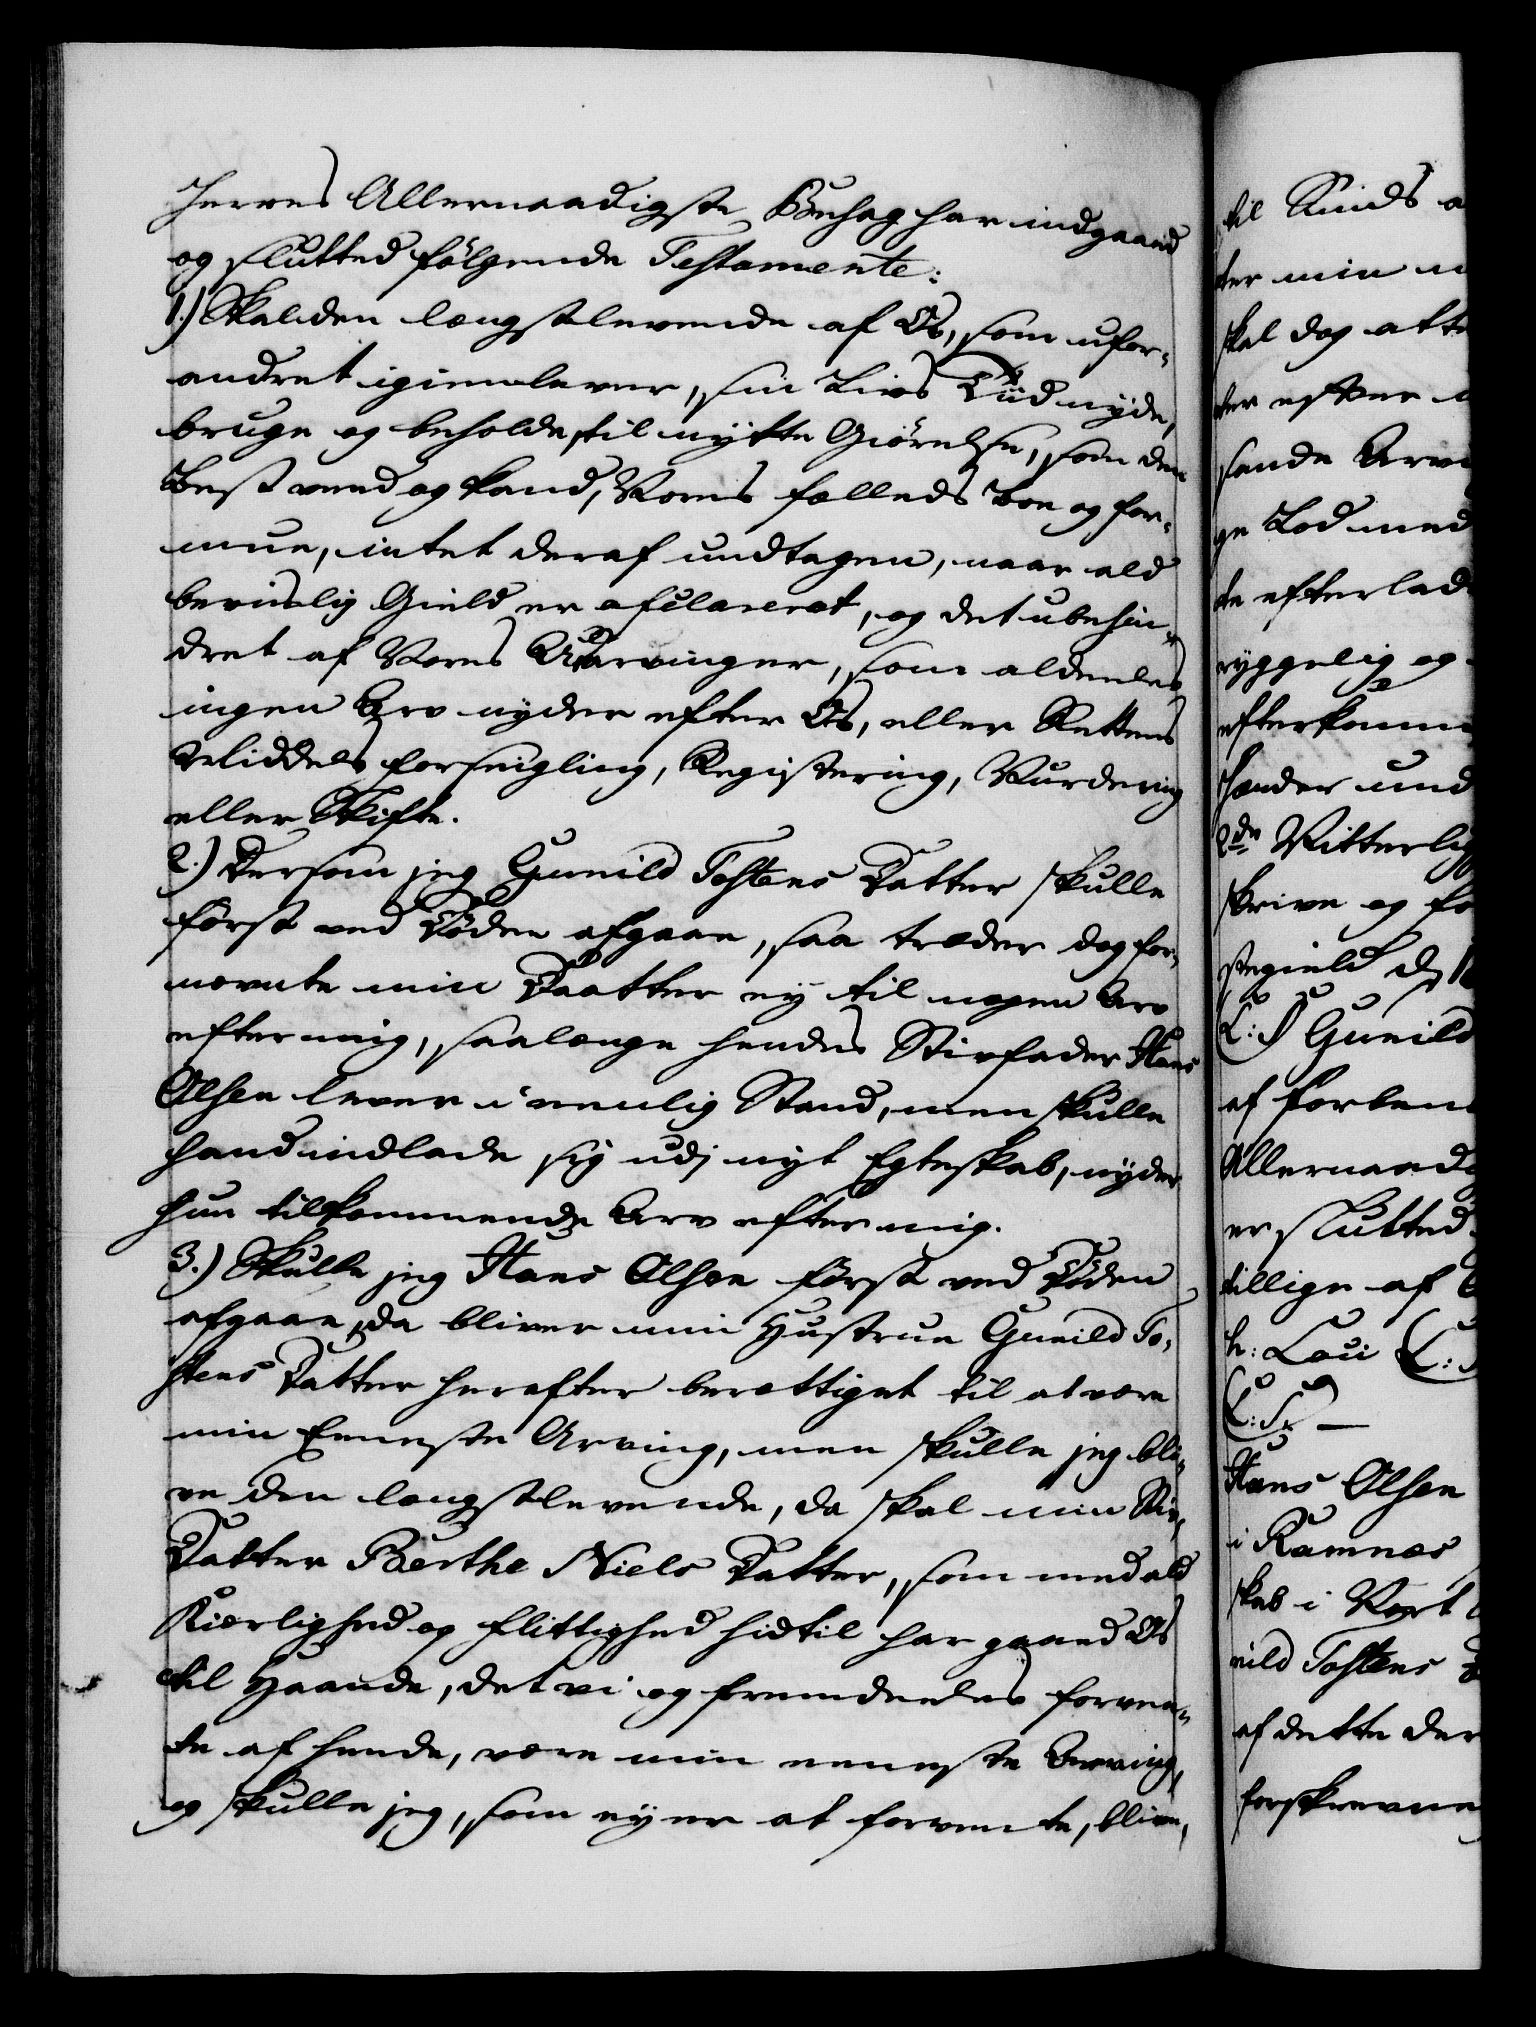 Herres Allernaadigste Behag har indgaaed
og slutted følgende Testamente:
1.) Skal den længstlevende af Os, som ufor-
andret igienlever, sin Livs Tiid nyde,
bruge og beholde, til nytte Giørelse, som den
best veed og kand, Vores fælleds Boe og for-
mue, intet deraf undtagen, naar ald
beviislig Gield er afclareret, og det ubehin-
dret af Vores Udarvinger, som aldeeles
ingen Arv nyder efter Os, eller Rettens
Middels forseigling, Registering, Vurdering
eller Skifte.
2.) Dersom jeg Gunild Tostens Datter skulle
først ved Døden afgaae, saa træder dog for-
nævnte min Daatter ey til nogen Arv
efter mig, saalænge hendes Stivfader Hans
Olsen lever i eenlig Stand, men skulle
hand indlade sig udj nyt Egteskab, nyder
hun tilkommende Arv efter mig.
3.) Skulle jeg Hans Olsen først ved Døden
afgaae, da bliver min Hustrue Gunild To-
stens Datter herefter berettiget til at være
min Eeneste Arving, men skulle jeg bli-
ve den længstlevende, da skal min Stiv-
Datter Berthe Niels Datter, som med ald
Kiærlighed og flittighed hidtil har gaaed Os
til Haande, det vi og fremdeeles forven-
te af hende, være min eeneste Arving,
og skulle jeg, som ey er at formente, blive,
til Sinds a
ter min
skal dog atte
ter efter
sande Arv
ge Lod med
te efterlad
ryggelig og
efterkomm
Hænder und
2de Vitterlig
skrive og fo
stegield d 1
(L: S Gunild
af forben
Allernaad
er slutted
tillige af
h: Loui (L: S
(L: S.) —
Hans Olsen
i Ramnes
skab i Vort
nild Tostens D
af dette der
forskrevne